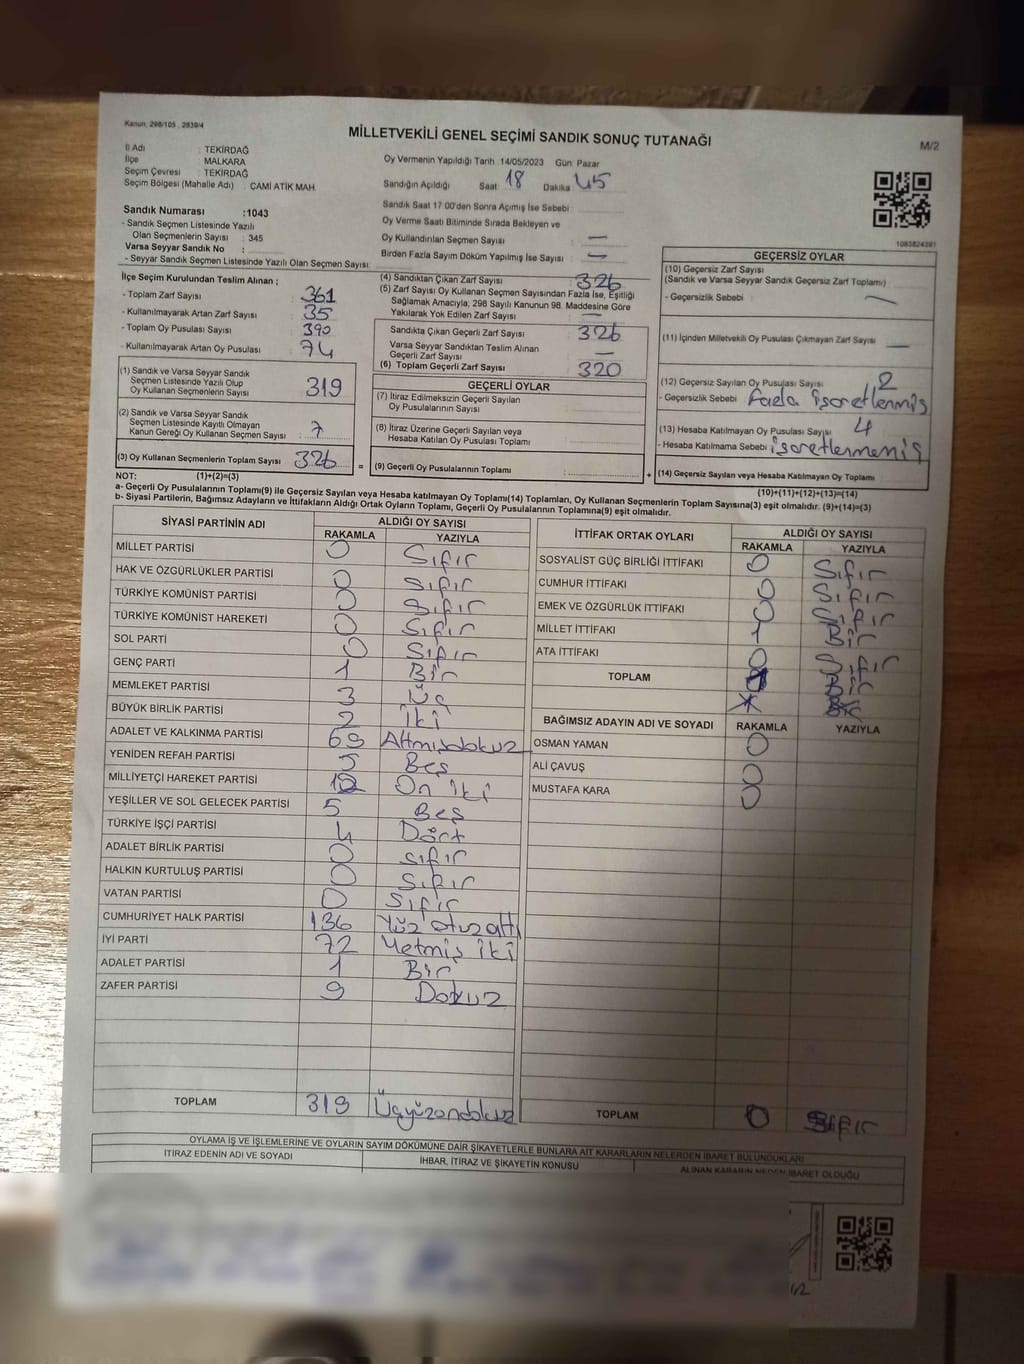 Kanun, 298/105 , 2839/4
MİLLETVEKİLİ GENEL SEÇİMİ SANDIK SONUÇ TUTANAĞI
M/2
İl Adı : TEKİRDAĞ
İlçe MALKARA
Seçim Çevresi : TEKİRDAĞ
Seçim Bölgesi (Mahalle Adı) : ÇAMİ ATİK MAH.
Oy Vermenin Yapıldığı Tarih : 14/05/2023 Gün: Pazar
Sandığın Açıldığı Saat : 18 Dakika : 45
Sandık Saat 17:00'den Sonra Açımış İse Sebebi:
Oy Verme Saati Bitiminde Sırada Bekleyen ve
Oy Kullandırılan Seçmen Sayısı : —
Birden Fazla Sayım Döküm Yapılmış İse Sayısı : —
Sandık Numarası :1043
- Sandık Seçmen Listesinde Yazılı
Olan Seçmenlerin Sayısı : 345
Varsa Seyyar Sandık No :
- Seyyar Sandık Seçmen Listesinde Yazılı Olan Seçmen Sayısı:
1083824391
İlçe Seçim Kurulundan Teslim Alınan ;
- Toplam Zarf Sayısı : 361
- Kullanılmayarak Artan Zarf Sayısı : 35
- Toplam Oy Pusulası Sayısı : 390
- Kullanılmayarak Artan Oy Pusulası : 74
(1) Sandık ve Varsa Seyyar Sandık
Seçmen Listesinde Yazılı Olup
Oy Kullanan Seçmenlerin Sayısı : 319
(2) Sandık ve Varsa Seyyar Sandık
Seçmen Listesinde Kayıtlı Olmayan
Kanun Gereği Oy Kullanan Seçmen Sayısı : 7
(3) Oy Kullanan Seçmenlerin Toplam Sayısı : 326
(4) Sandıktan Çıkan Zarf Sayısı : 326
(5) Zarf Sayısı Oy Kullanan Seçmen Sayısından Fazla İse, Eşitliği
Sağlamak Amacıyla; 298 Sayılı Kanunun 98. Maddesine Göre
Yakılarak Yok Edilen Zarf Sayısı : —
Sandıkta Çıkan Geçerli Zarf Sayısı : 326
Varsa Seyyar Sandıktan Teslim Alınan
Geçerli Zarf Sayısı : —
(6) Toplam Geçerli Zarf Sayısı : 320
GEÇERLİ OYLAR
(7) İtiraz Edilmeksizin Geçerli Sayılan
Oy Pusulalarının Sayısı :
(8) İtiraz Üzerine Geçerli Sayılan veya
Hesaba Katılan Oy Pusulası Toplamı :
= (9) Geçerli Oy Pusulalarının Toplamı :
GEÇERSİZ OYLAR
(10) Geçersiz Zarf Sayısı
(Sandık ve Varsa Seyyar Sandık Geçersiz Zarf Toplamı) :
- Geçersizlik Sebebi : —
(11) İçinden Milletvekili Oy Pusulası Çıkmayan Zarf Sayısı : —
(12) Geçersiz Sayılan Oy Pusulası Sayısı : 2
- Geçersizlik Sebebi : fazla işaretlenmiş
(13) Hesaba Katılmayan Oy Pusulası Sayısı : 4
- Hesaba Katılmama Sebebi : işaretlenmemiş
+ (14) Geçersiz Sayılan veya Hesaba Katılmayan Oy Toplamı :
NOT: (1)+(2)=(3)
(10)+(11)+(12)+(13)=(14)
a- Geçerli Oy Pusulalarının Toplamı(9) ile Geçersiz Sayılan veya Hesaba katılmayan Oy Toplamı(14) Toplamları, Oy Kullanan Seçmenlerin Toplam Sayısına(3) eşit olmalıdır. (9)+(14)=(3)
b- Siyasi Partilerin, Bağımsız Adayların ve İttifakların Aldığı Ortak Oyların Toplamı, Geçerli Oy Pusulalarının Toplamına(9) eşit olmalıdır.
SİYASİ PARTİNİN ADI ALDIĞI OY SAYISI
RAKAMLA YAZIYLA
MİLLET PARTİSİ 0 Sıfır
HAK VE ÖZGÜRLÜKLER PARTİSİ 0 Sıfır
TÜRKİYE KOMÜNİST PARTİSİ 0 Sıfır
TÜRKİYE KOMÜNİST HAREKETİ 0 Sıfır
SOL PARTİ 0 Sıfır
GENÇ PARTİ 1 Bir
MEMLEKET PARTİSİ 3 Üç
BÜYÜK BİRLİK PARTİSİ 2 İki
ADALET VE KALKINMA PARTİSİ 69 Altmışdokuz
YENİDEN REFAH PARTİSİ 5 Beş
MİLLİYETÇİ HAREKET PARTİSİ 12 On iki
YEŞİLLER VE SOL GELECEK PARTİSİ 5 Beş
TÜRKİYE İŞÇİ PARTİSİ 4 Dört
ADALET BİRLİK PARTİSİ 0 sıfır
HALKIN KURTULUŞ PARTİSİ 0 Sıfır
VATAN PARTİSİ 0 Sıfır
CUMHURİYET HALK PARTİSİ 136 Yüz otuz altı
İYİ PARTİ 72 Yetmiş iki
ADALET PARTİSİ 1 Bir
ZAFER PARTİSİ 9 Dokuz
TOPLAM 319 Üçyüzondokuz
İTTİFAK ORTAK OYLARI ALDIĞI OY SAYISI
RAKAMLA YAZIYLA
SOSYALİST GÜÇ BİRLİĞİ İTTİFAKI 0 Sıfır
CUMHUR İTTİFAKI 0 Sıfır
EMEK VE ÖZGÜRLÜK İTTİFAKI 0 Sıfır
MİLLET İTTİFAKI 1 Bir
ATA İTTİFAKI 0 Sıfır
TOPLAM 1 Bir
BAĞIMSIZ ADAYIN ADI VE SOYADI RAKAMLA YAZIYLA
OSMAN YAMAN 0
ALİ ÇAVUŞ 0
MUSTAFA KARA 0
TOPLAM 0 Sıfır
OYLAMA İŞ VE İŞLEMLERİNE VE OYLARIN SAYIM DÖKÜMÜNE DAİR ŞİKAYETLERLE BUNLARA AİT KARARLARIN NELERDEN İBARET BULUNDUKLARI
İTİRAZ EDENİN ADI VE SOYADI İHBAR, İTİRAZ VE ŞİKAYETİN KONUSU ALINAN KARARIN NEDEN İBARET OLDUĞU